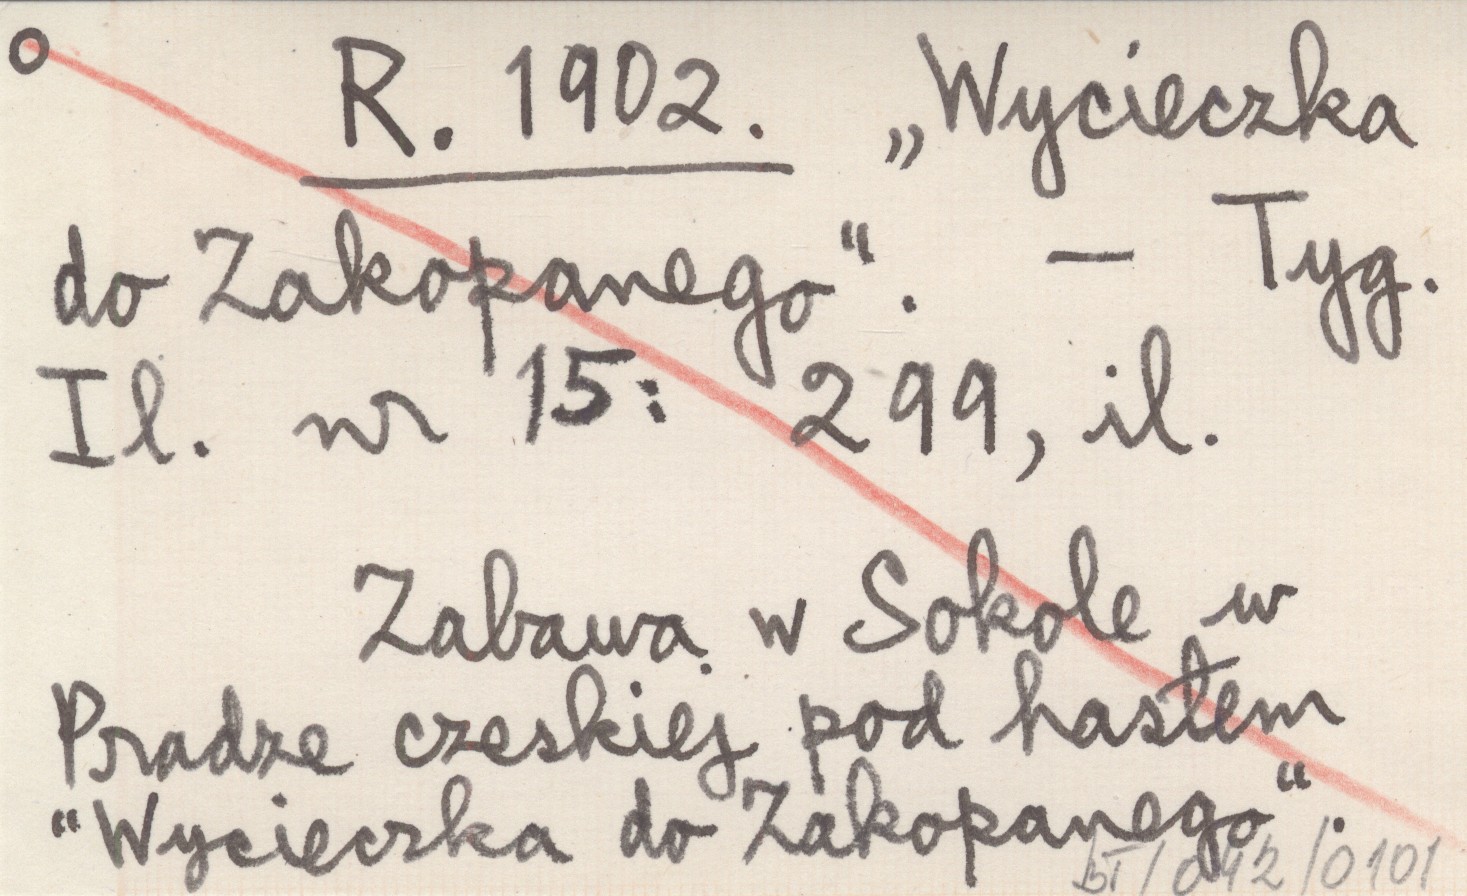 R. 1902. „Wycieczka
do Zakopanego“. — Tyg.
Il. nr 15: 299, il.
Zabawa w Sokole w
Pradze czeskiej pod hasłem
“Wycieczka do Zakopanego“.
bT/042/0101